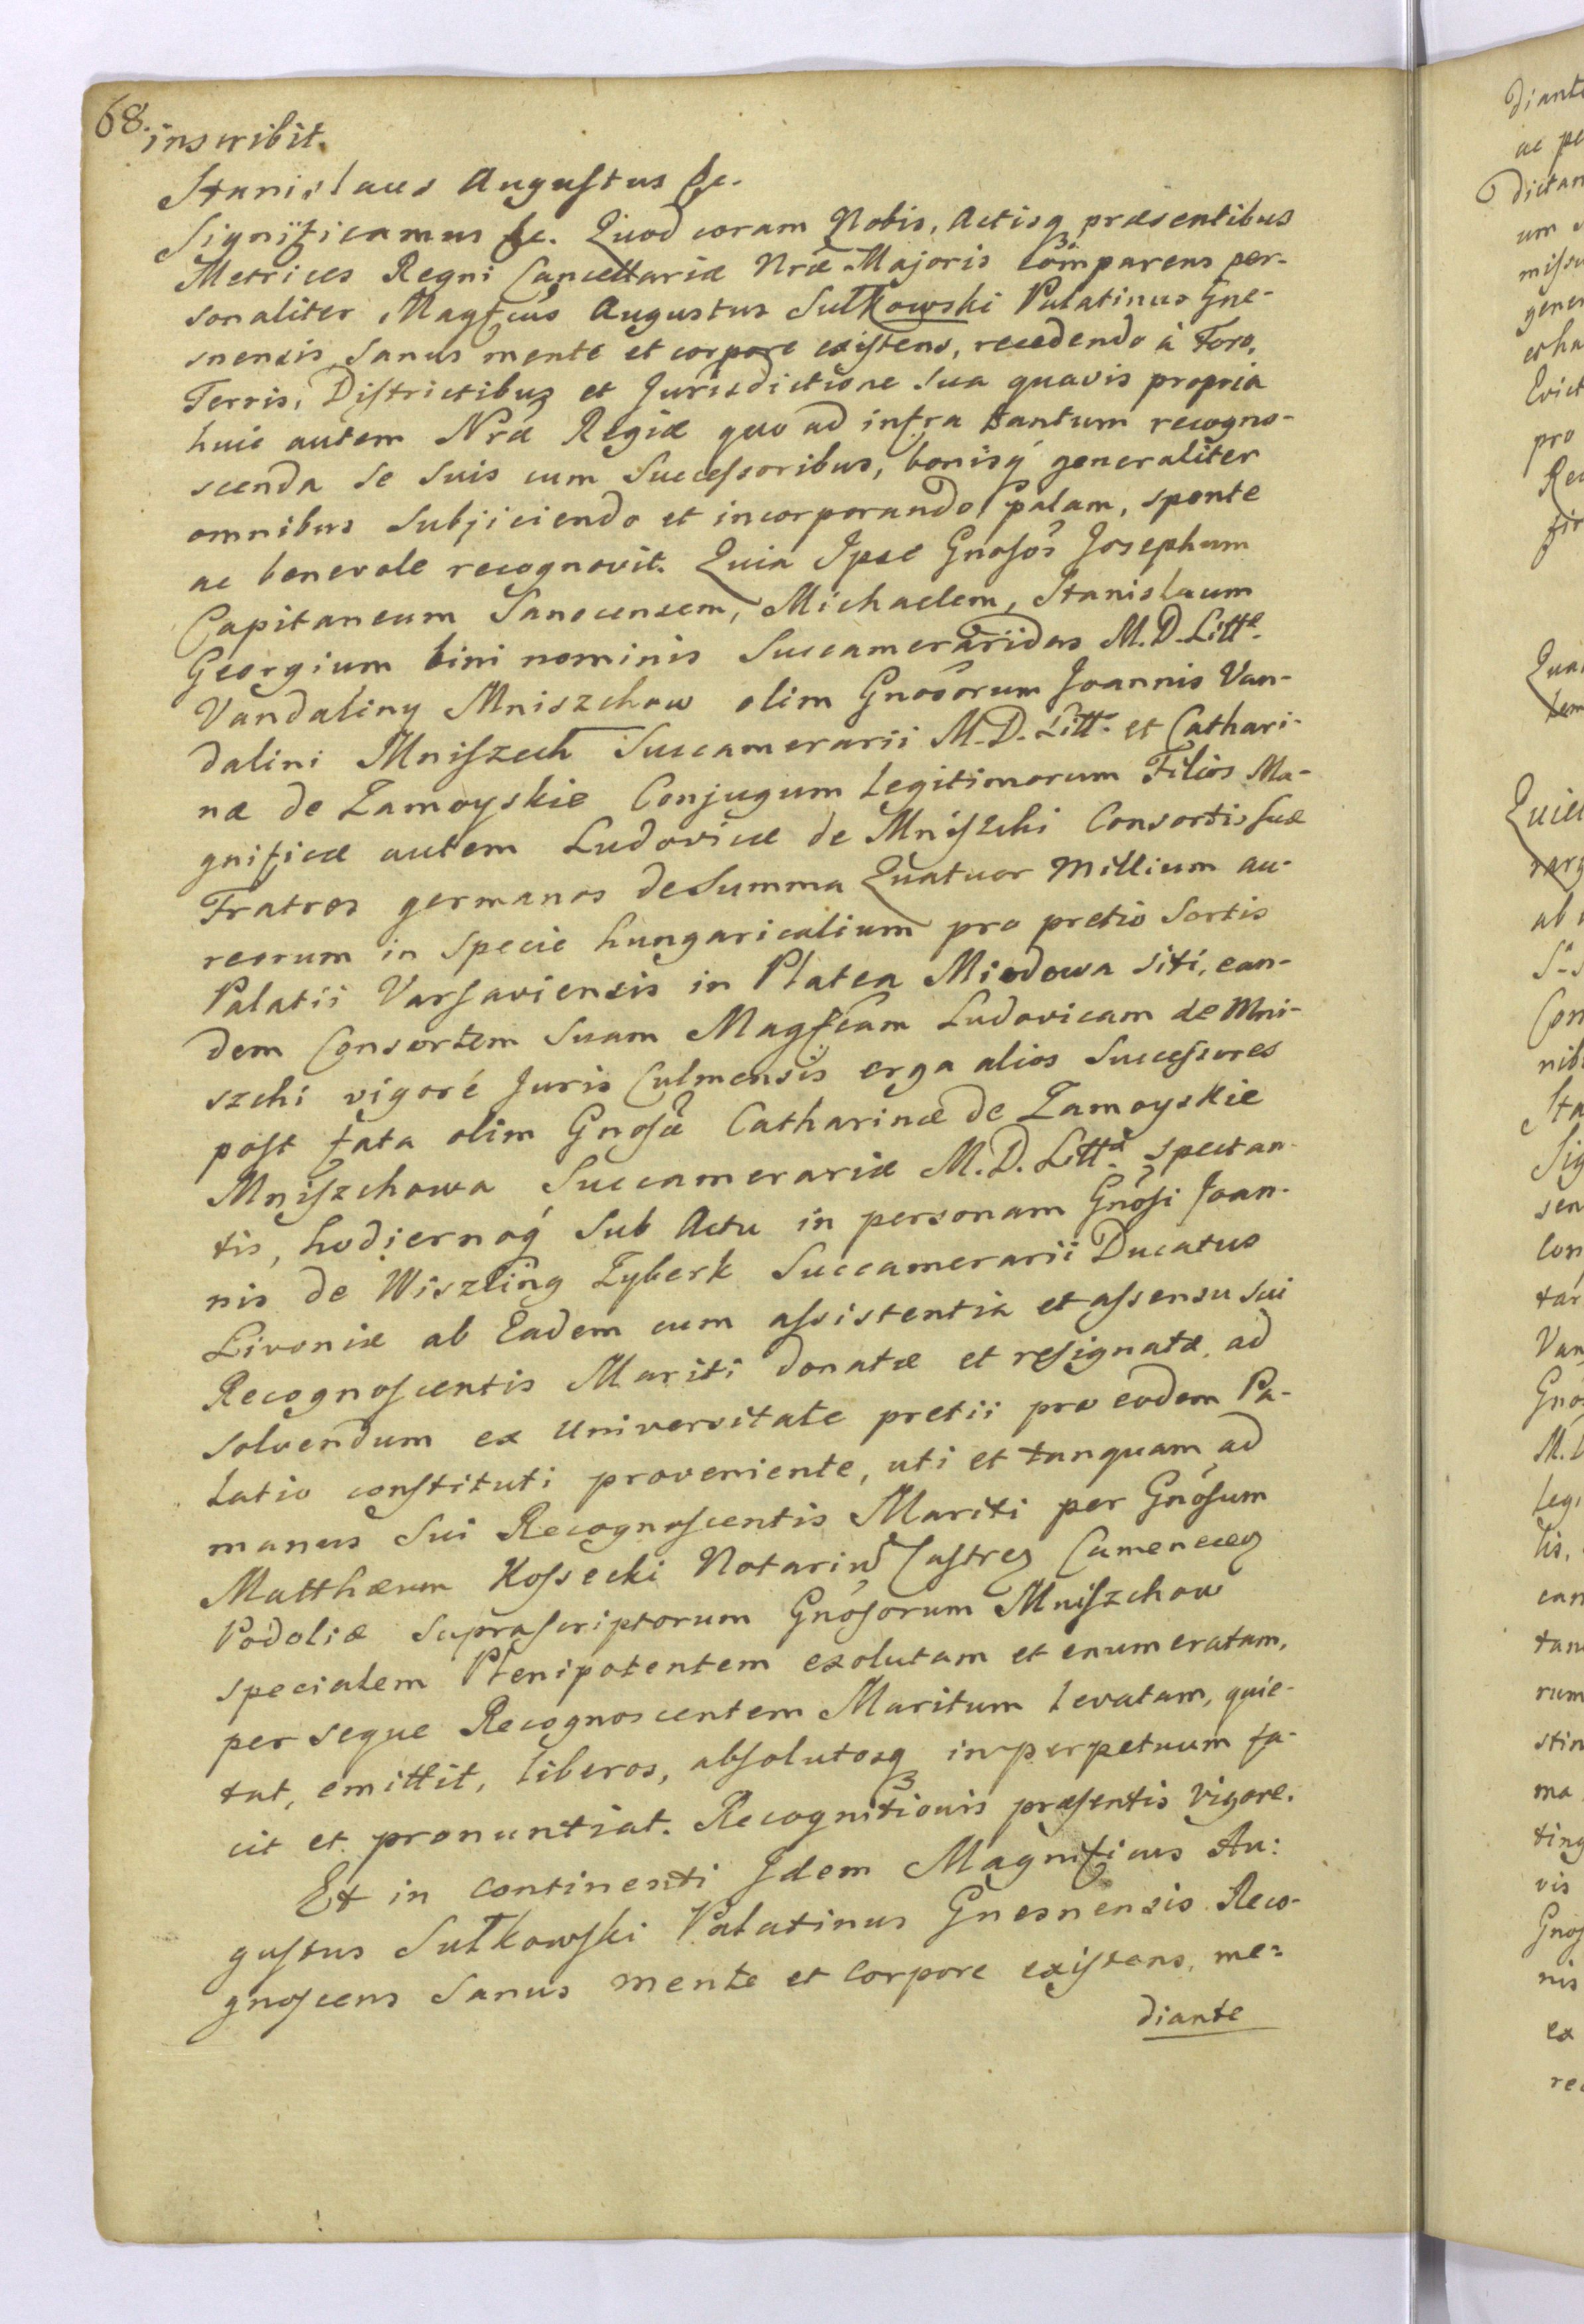 68.
inscribit.
Stanislaus Augustus &c.
Significamus &c. Quod coram Nobis, Actisq3 præsentibus
Metrices Regni Cancellariæ Nræ Majoris comparens per-
sonaliter Magfcus Augustus Sułkowski Palatinus Gne-
snensis Sanus mente et corpore existens, recedendo à Foro,
Terris, Districtibus et Jurisdictione sua quavis propria
huic autem Nræ Regiæ quo ad infra tantum recogno-
scenda se suis cum Successoribus, bonisq́ generaliter
omnibus subjiciendo et incorporando, palam, sponte
ac benevole recognovit. Quia Ipse Gnosos Josephum
Capitaneum Sanocensem, Michaelem, Stanislaum
Georgium bini nominis Succamerariidas M. D. Littᵉ.
Vandaliny Mniszchow olim Gnosorum Joannis Van-
dalini Mniszech Succamerarii M. D. Litt. et Cathari-
næ de Zamoyskie Conjugum legitimorum Filios Ma-
gnificæ autem Ludovicæ de Mniszchi Consortis suæ
Fratres germanos de Summa Quatuor Millium au-
reorum in specie hungaricalium pro pretio Sortis
Palatii Varsaviensis in Platea Miodowa siti, ean-
dem Consortem Suam Magfcam Ludovicam de Mni-
szchi vigoré Juris Culmensis erga alios Successores
post fata olim Gnosæ Catharinæ de Zamoyskie
Mniszchowa Succamerariæ M. D. Littᵃ. spectan-
tis, hodiernoq́ sub Actu in personam Gnosi Joan-
nis de Wiszling Zyberk Succamerarii Ducatus
Livoniæ ab Eadem cum assistentia et assensu sui
Recognoscentis Mariti donatæ et resignatæ, ad
solvendum ex universitate pretii pro eodem Pa-
latio constituti proveniente, uti et tanquam ad
manus sui Recognoscentis Mariti per Gnosum
Matthæum Kossecki Notariu Castrez Camenecez
Podoliæ suprascriptorum Gnosorum Mniszchow
specialem Plenipotentem exolutam et enumeratam,
per seque Recognoscentem Maritum levatam, quie-
tat, emittit, liberos, absolutosq3 in perpetuum fa-
cit et pronuntiat. Recognitionis præsentis vigore.
Et in continenti Idem Magnificus Au:
gustus Sułkowski Palatinus Gnesnensis Reco-
gnoscens Sanus mente et Corpore existens, me=
diante